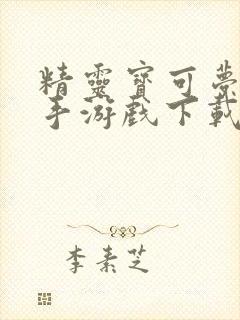 精靈寶可夢
手游戲下載
李素芝